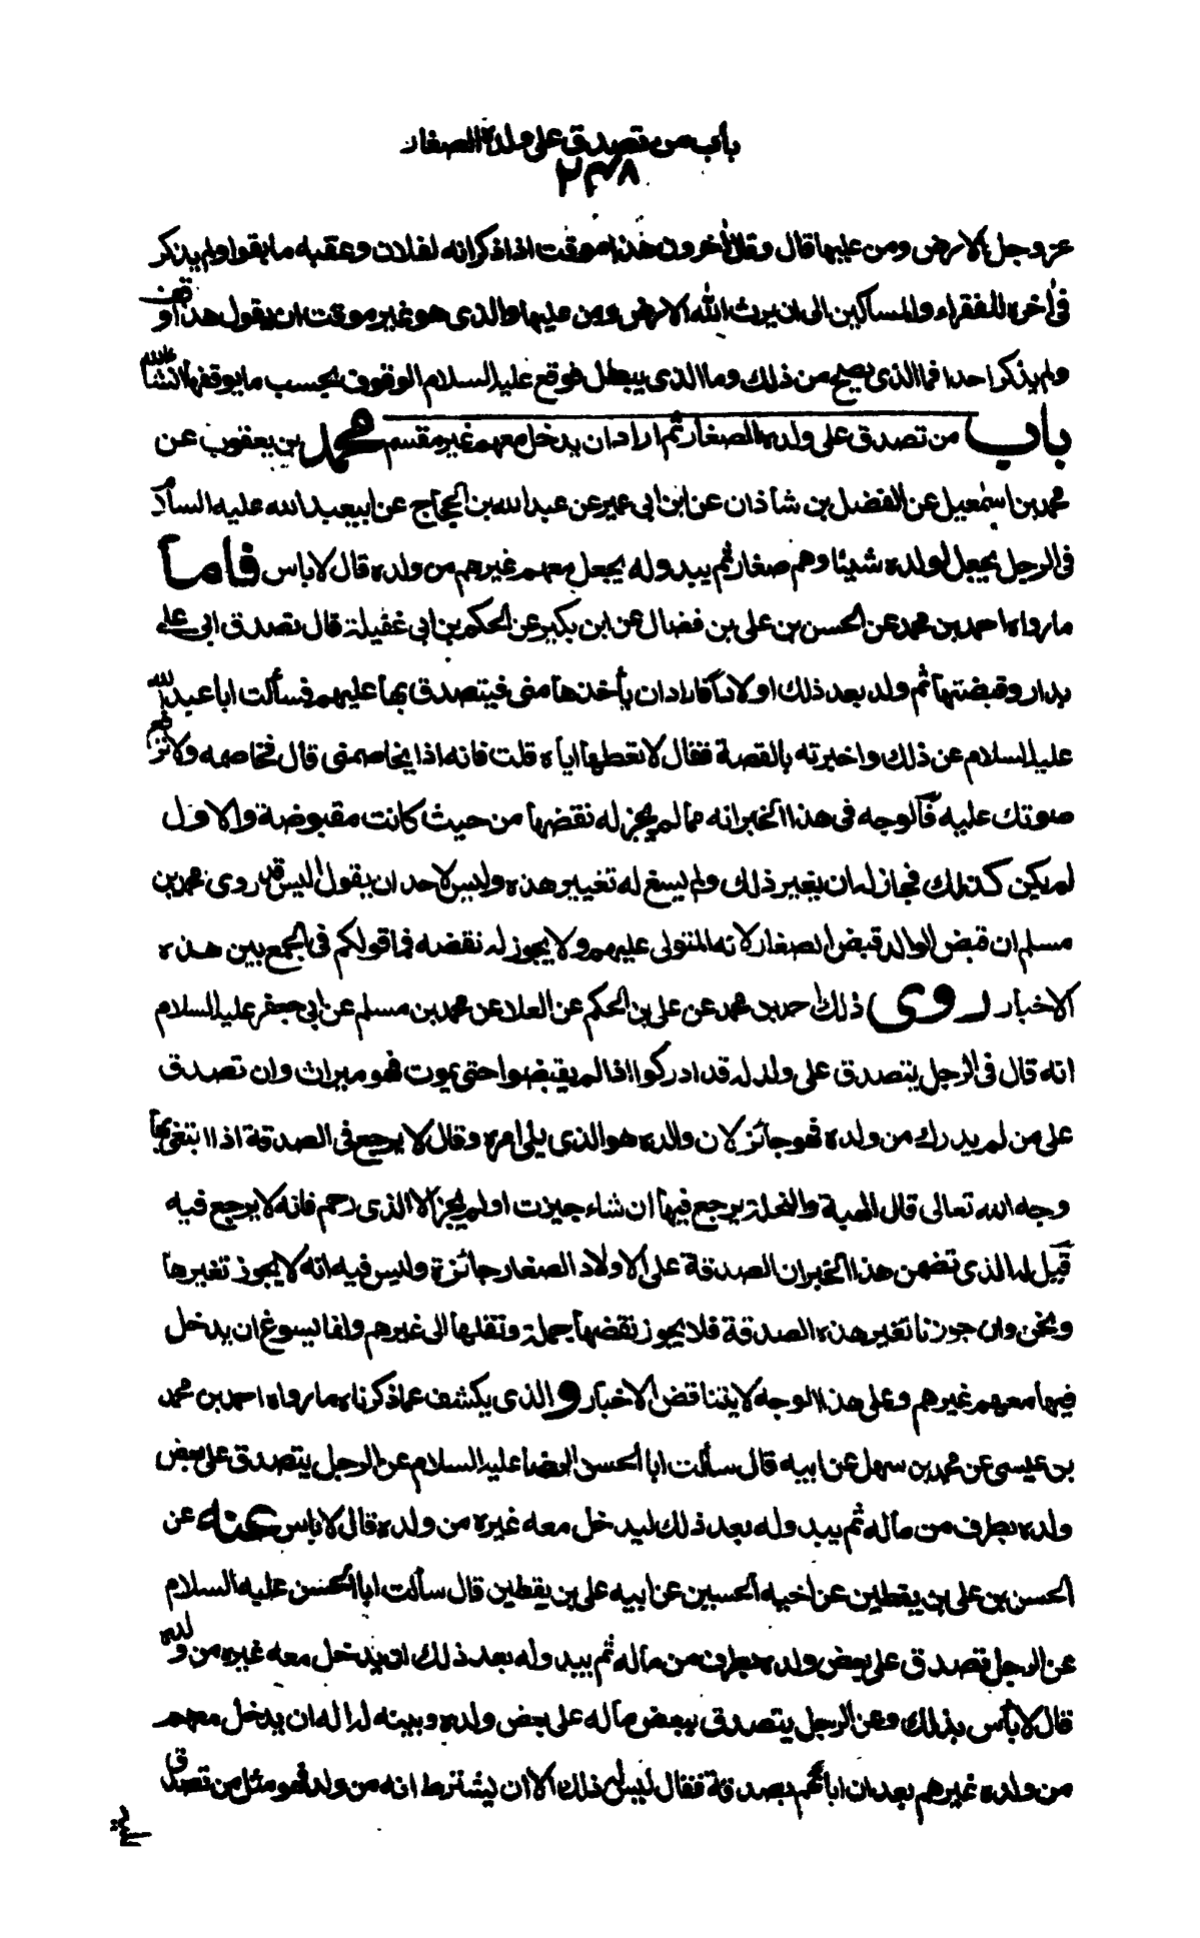 باب من تصدق على ولده الصغار
٢٣٨
عز وجل الارض ومن عليها قال وقال آخرون هذا موقت اذا ذكر انه لفلان وعقبه ما بقوا ولم يذكر
فى آخره للفقراء والمساكين الى ان يرث الله الارض ومن عليها والذى هو غير موقت ان يقول هذا وقف
ولم يذكر احدا فما الذى يصح من ذلك وما الذى يبطل فوقع عليه السلام الوقوف بحسب ما يوقفها انشاء الله
باب من تصدق على ولده الصغار ثم اراد ان يدخل معهم غيرهم محمد بن يعقوب عن
محمد بن اسمعيل عن الفضل بن شاذان عن ابن ابى عمير عن عبد الله بن الحجاج عن ابيعبد الله عليه السلام
فى الرجل يجعل لولده شيئا وهم صغار ثم يبدو له يجعل معهم غيرهم من ولده قال لا باس فاما
ما رواه احمد بن محمد عن الحسن بن على بن فضال عن ابن بكير عن الحكم بن ابى غفيلة قال تصدق ابى على
بدار وقبضتها ثم ولد بعد ذلك اولاد فاراد ان يأخذها منى فيتصدق بها عليهم فسألت ابا عبد الله
عليه السلام عن ذلك واخبرته بالقصة فقال لا تعطها اياه قلت فانه اذا يخاصمنى قال فخاصمه ولا ترفع
صوتك عليه فالوجه فى هذا الخبر انه مما لم يجز له نقضها من حيث كانت مقبوضة والاول
لم يكن كذلك فجاز له ان يغير ذلك ولم يسغ له تغيير هذه وليس لاحد ان يقول اليس قد روى محمد بن
مسلم ان قبض الوالد قبض الصغار لانه المتولى عليهم ولا يجوز له نقضه فما قولكم فى الجمع بين هذه
الاخبار روى ذلك احمد بن محمد عن على بن الحكم عن العلا عن محمد بن مسلم عن ابى جعفر عليه السلام
انه قال فى الرجل يتصدق على ولد له قد ادركوا اذا لم يقبضوا حتى يموت فهو ميراث وان تصدق
على من لم يدرك من ولده فهو جائز لان والده هو الذى يلى امره وقال لا يرجع فى الصدقة اذا ابتغى بها
وجه الله تعالى قال الهبة والنحلة يرجع فيها ان شاء حيزت او لم يجز الا لذى رحم فانه لا يرجع فيه
قيل له الذى تضمن هذا الخبر ان الصدقة على الاولاد الصغار جائزة وليس فيه انه لا يجوز تغيرها
ونحن وان جوزنا تغير هذه الصدقة فلا يجوز نقضها جملة ونقلها الى غيرهم وانما يسوغ ان يدخل
فيها معهم غيرهم وعلى هذا الوجه لا يتناقض الاخبار والذى يكشف عما ذكرناه ما رواه احمد بن محمد
بن عيسى عن محمد بن سهل عن ابيه قال سألت ابا الحسن الرضا عليه السلام عن الرجل يتصدق على بعض
ولده بطرف من ماله ثم يبدو له بعد ذلك ليدخل معه غيره من ولده قال لا باس عنه عن
الحسن بن على بن يقطين عن اخيه الحسين عن ابيه على بن يقطين قال سألت ابا الحسن عليه السلام
عن الرجل تصدق على بعض ولده بطرف من ماله ثم يبدو له بعد ذلك ان يدخل معه غيره من ولده
قال لا بأس بذلك وعن الرجل يتصدق ببعض ماله على بعض ولده ويبينه له اله ان يدخل معهم
من ولده غيرهم بعد ان ابانهم بصدقة فقال ليس له ذلك الا ان يشترط انه من ولد فهو مثل من تصدق
عليه